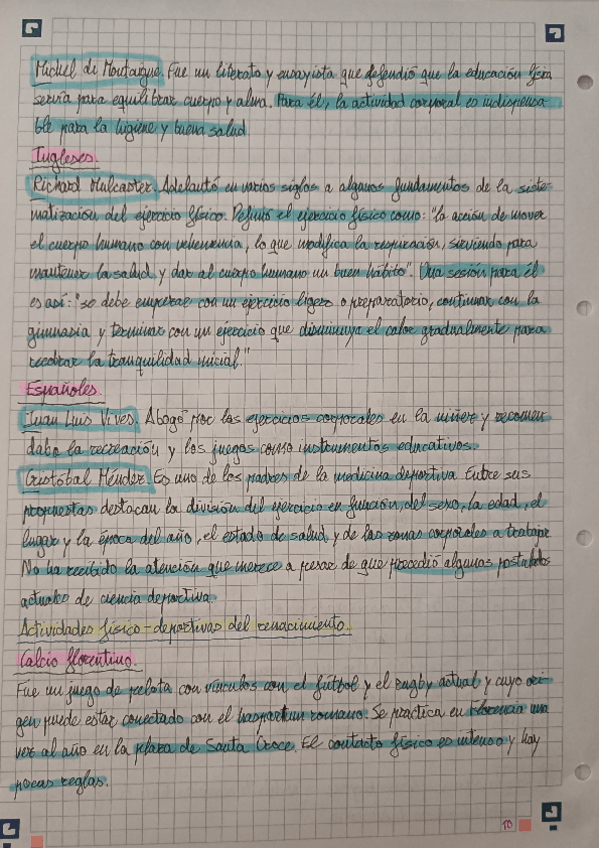 Michel de Montaigne. Fue un literato y ensayista que defendió que la educación física
servía para equilibrar cuerpo y alma. Para él, la actividad corporal es indispensa-
ble para la higiene y buena salud
Ingleses.
Richard Mulcaster. Adelantó en varios siglos a algunos fundamentos de la siste-
matización del ejercicio físico. Definió el ejercicio físico como: "la acción de mover
el cuerpo humano con vehemencia, lo que modifica la respiración, sirviendo para
mantener la salud y dar al cuerpo humano un buen hábito". Una sesión para él
es así: "se debe empezar con un ejercicio ligero o preparatorio, continuar con la
gimnasia y terminar con un ejercicio que disminuya el calor gradualmente para
recobrar la tranquilidad inicial."
Españoles.
Juan Luis Vives. Abogó por los ejercicios corporales en la niñez y recomen-
daba la recreación y los juegos como instrumentos educativos.
Cristóbal Méndez. Es uno de los padres de la medicina deportiva. Entre sus
propuestas destacan la división del ejercicio en función del sexo, la edad, el
lugar y la época del año, el estado de salud y de las zonas corporales a trabajar.
No ha recibido la atención que merece a pesar de que precedió algunos postulados
actuales de ciencia deportiva.
Actividades físico-deportivas del renacimiento.
Calcio florentino.
Fue un juego de pelota con vínculos con el fútbol y el rugby actual y cuyo ori-
gen puede estar conectado con el harpastum romano. Se practica en Florencia una
vez al año en la plaza de Santa Croce. El contacto físico es intenso y hay
pocas reglas.
10